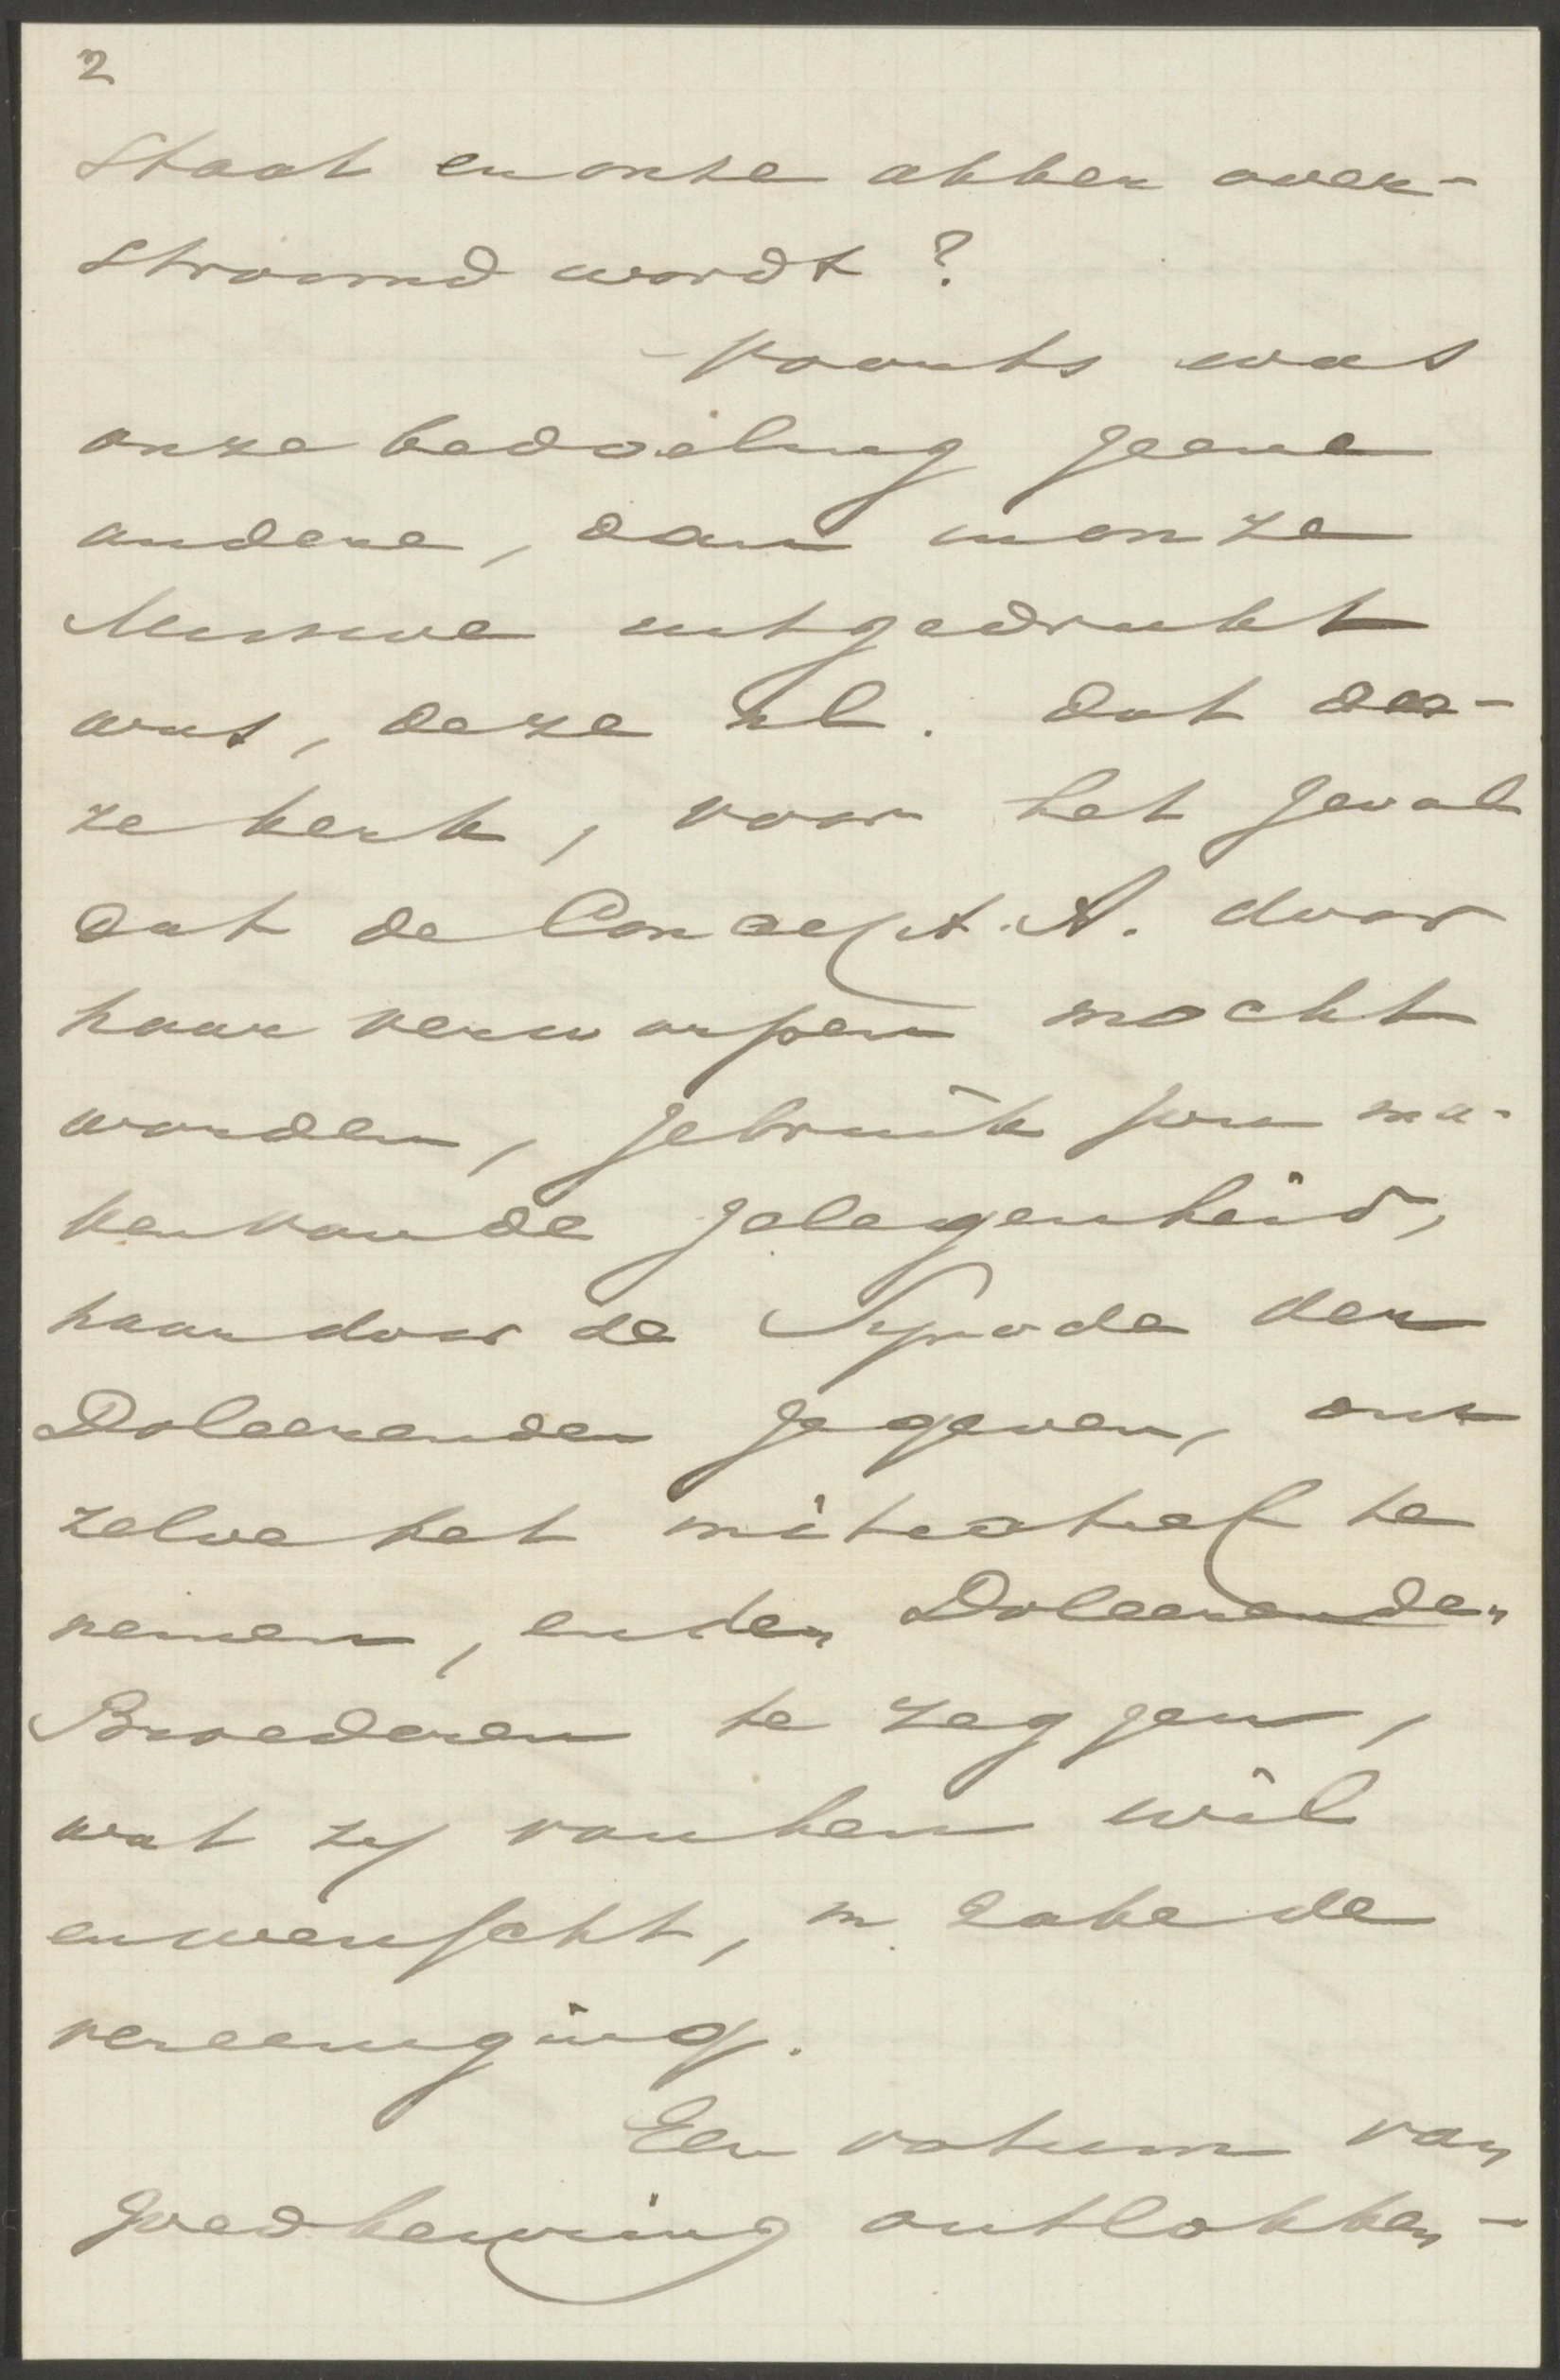 2
Staat en onze akker over-
stroomd wordt?
- Voorts was
onze bedoeling geene
andere, dan in onze
Missive uitgedrukt
was, deze nl. dat dee-
ze kerk, voor het geval
dat de Concept. A. door
haar verworpen mocht
worden, gebruik zou ma-
ken van de gelegenheid,
haar door de Synode der
Doleerenden gegeven, om
zelve het initiatief te
nemen, en den Doleerenden
Broederen te zeggen,
wat zij van hen wil
en wenscht, in zake de
vereeniging.
Een votum van
goedkeuring ontlokken-